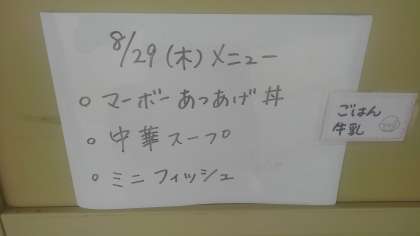 8/29(木)メニュー
○ マーボーあつあげ丼
○ 中華スープ
○ ミニフィッシュ
ごはん
牛乳